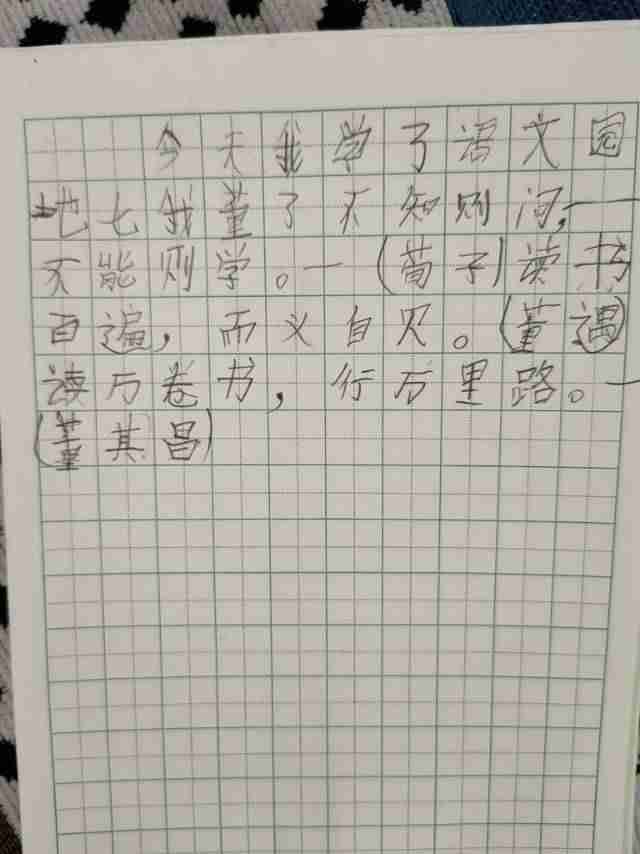 今天我学了语文园
地七我董了不知则问,一
不能则学。一(荀子)读书
百遍,而义自见。(董遇)
读万卷书,行万里路。一
(董其昌)